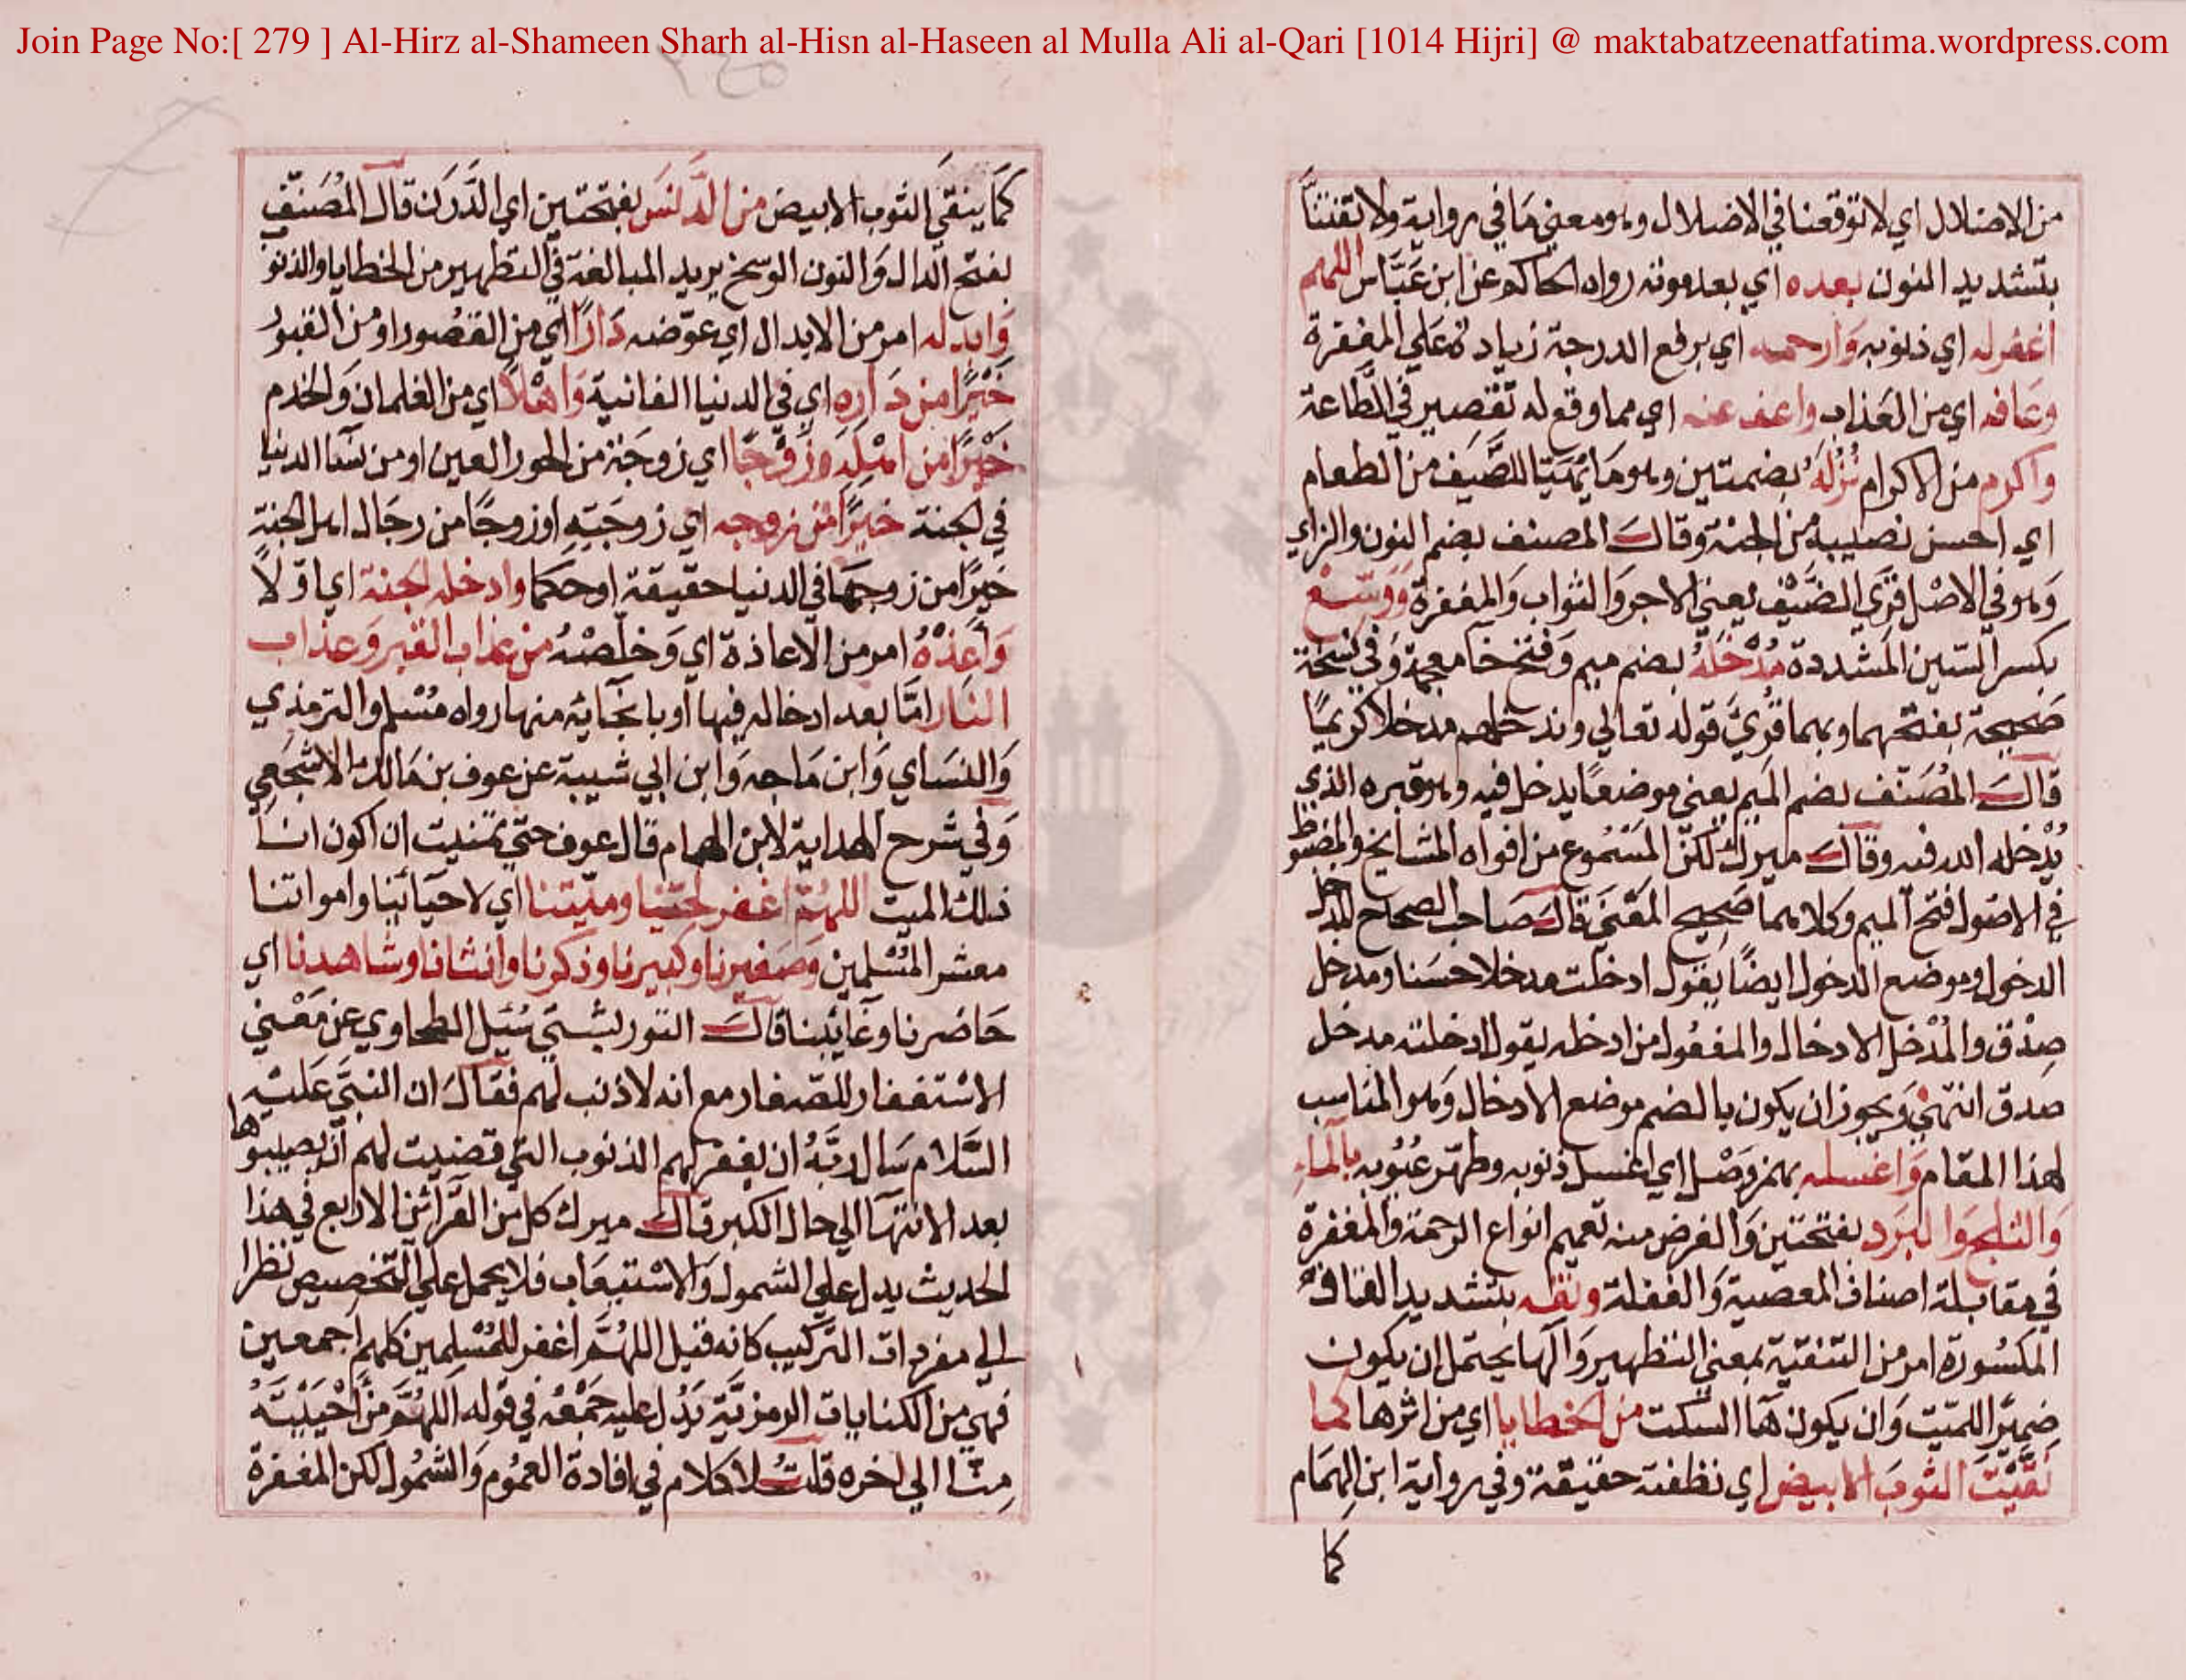 Join Page No:[ 279 ] Al-Hirz al-Shameen Sharh al-Hisn al-Haseen al Mulla Ali al-Qari [1014 Hijri] @ maktabatzeenatfatima.wordpress.com
من الاضلال اي لا توقعنا في الاضلال وهو معني ما في رواية ولا تفتنا
بتشديد النون بعده اي بعد موته رواه الحاكم عن ابن عَبَّاس اللهم
اغفر له اي ذنوبه وَارحمه اي برفع الدرجة زيادة علي المغفرة
وعَافه اي من العَذاب واعف عنه اي مما وقع له تقصير في الطَّاعة
واكرم من الاكرام نُزُلَهُ بضمتين وهو مَا يُهَيَّا للضَّيف من الطعام
اي احسن نصيبه من الجنة وقالَ المصنف بضم النون والزاي
وَهو في الاصْل قِرَي الضَّيْف يعني الاجر وَالثواب وَالمغفرة وَوَسِّعْ
بكسر السّين المشددة مُدْخَلَهُ بضم ميم وَفتح خا معجمة وَفي نسخة
صَحيحة بفتحهما وبهما قُرِيَ قوله تعالي وندخلهم مدخلا كريمًا
قالَ المُصَنّف بضم الميم يعني موضعًا يدخل فيه وهو قبره الذي
يُدْخله الله فيه وقالَ ميرك لكنّ المَسْمُوع من افواه المشايخ والمضبوط
في الاصول فتح الميم وكلاهما صَحيح المَعْنَي قالَ صَاحب الصحاح المدخل
الدخول وموضع الدخول ايضًا يقول ادخلت مدخلا حسَنا ومدخل
صِدْق والمُدْخل الادخال والمفعُول من ادخله يقول ادخلته مدخل
صدق انتهي وَيجوز ان يكون بالضم موضع الادخال وَهو المناسب
لهذا المقام وَاغسله بهمز وَصْل اي اغسل ذنوبه وطهّر عُيُوبه بالماءِ
وَالثلج وَالبَرَد بفتحتين وَالغرض منه تعميم انواع الرحمة وَالمغفرة
في مقابلة اصناف المعصية وَالغفلة ونقه بتشديد القاف
المكسُورة امر من التنقية بمعني التطهير وَالها يحتمل ان يكون
ضميرَ الميّت وَان يكون هَا السّكت من الخطايا اي من اثرها كما
نَقَّيْتَ الثوبَ الابيض اي نظفته حقيقة وفي رواية ابن الهمَام
كما
كَمَا ينقَّي الثوب الابيض من الدَّنَس بفتحتين اي الدَّرَن قالَ المُصَنّف
بفتح الدال وَالنون الوسخ يريد المبالغة في التطهير من الخطايا والذنو
وَابدله امر من الابدال اي عوّضه دَارًا اي من القصُور او من القبوُر
خَيْرًا من دَاره اي في الدنيا الفانية وَاهْلًا اي من الغلمان وَالخدم
خَيْرًا من اهْلِهِ وَزَوْجًا اي زوجَة من الحور العين او من نسَا الدنيا
في الجنة خيرًا من زوجه اي زوجَتِهِ او زوجًا من رجَال اهل الجنة
خَيرًا من زوجهَا في الدنيا حقيقة او حكما وادخله الجنة اي اوّلًا
وَأعِذْهُ امر من الاعاذة اي وَخلّصْهُ من عذاب القبر وَعذاب
النار امّا بعد ادخاله فيها أو بانجَائه منها رواه مُسْلم والترمذي
وَالنسَاي وَابن مَاجه وَابن ابي شيبة عن عوف بن مَالك الاشجَعي
وَفي شرح الهداية لابن الهمام قال عوف حتي تمنيت ان اكون انَا
ذلك الميت اللهُمَّ اغفر لحيّنا وميّتنا اي لاحيَائنا وامواتنا
معشر المُسْلمين وَصَغيرنا وكبيرنا وذكرنا وأنثانا وشاهدنا اي
حَاضرنا وغائبنا قالَ التوربشتي سُئِل الطحاوي عن مَعْني
الاسْتغفار للصّغار مع انه لا ذنب لهم فقالَ ان النبيَّ عَليْهِ
السَّلام سَال ربَّهُ ان يغفر لهم الذنوب التي قضيت لهم ان يصيبوها
بعد الانتهَا الي حال الكبر قالَ ميرك كل من القَرائن الاربع في هذا
الحديث يدل علي الشمول وَالاسْتيعَاب فلا يحمل علي التخصيص نظرا
الي مفردات التركيب كانه قيل اللهُمَّ اغفر للمُسْلمين كلهم اجمعين
فهي من الكنايات الرمزيَّة يَدُل عليه جَمْعُه في قوله اللهُمَّ مَنْ أحْيَيْتَهُ
مِنّا الي اخره قلتُ لا كلام في افادة العمُوم وَالشمُول لكن المغفرة